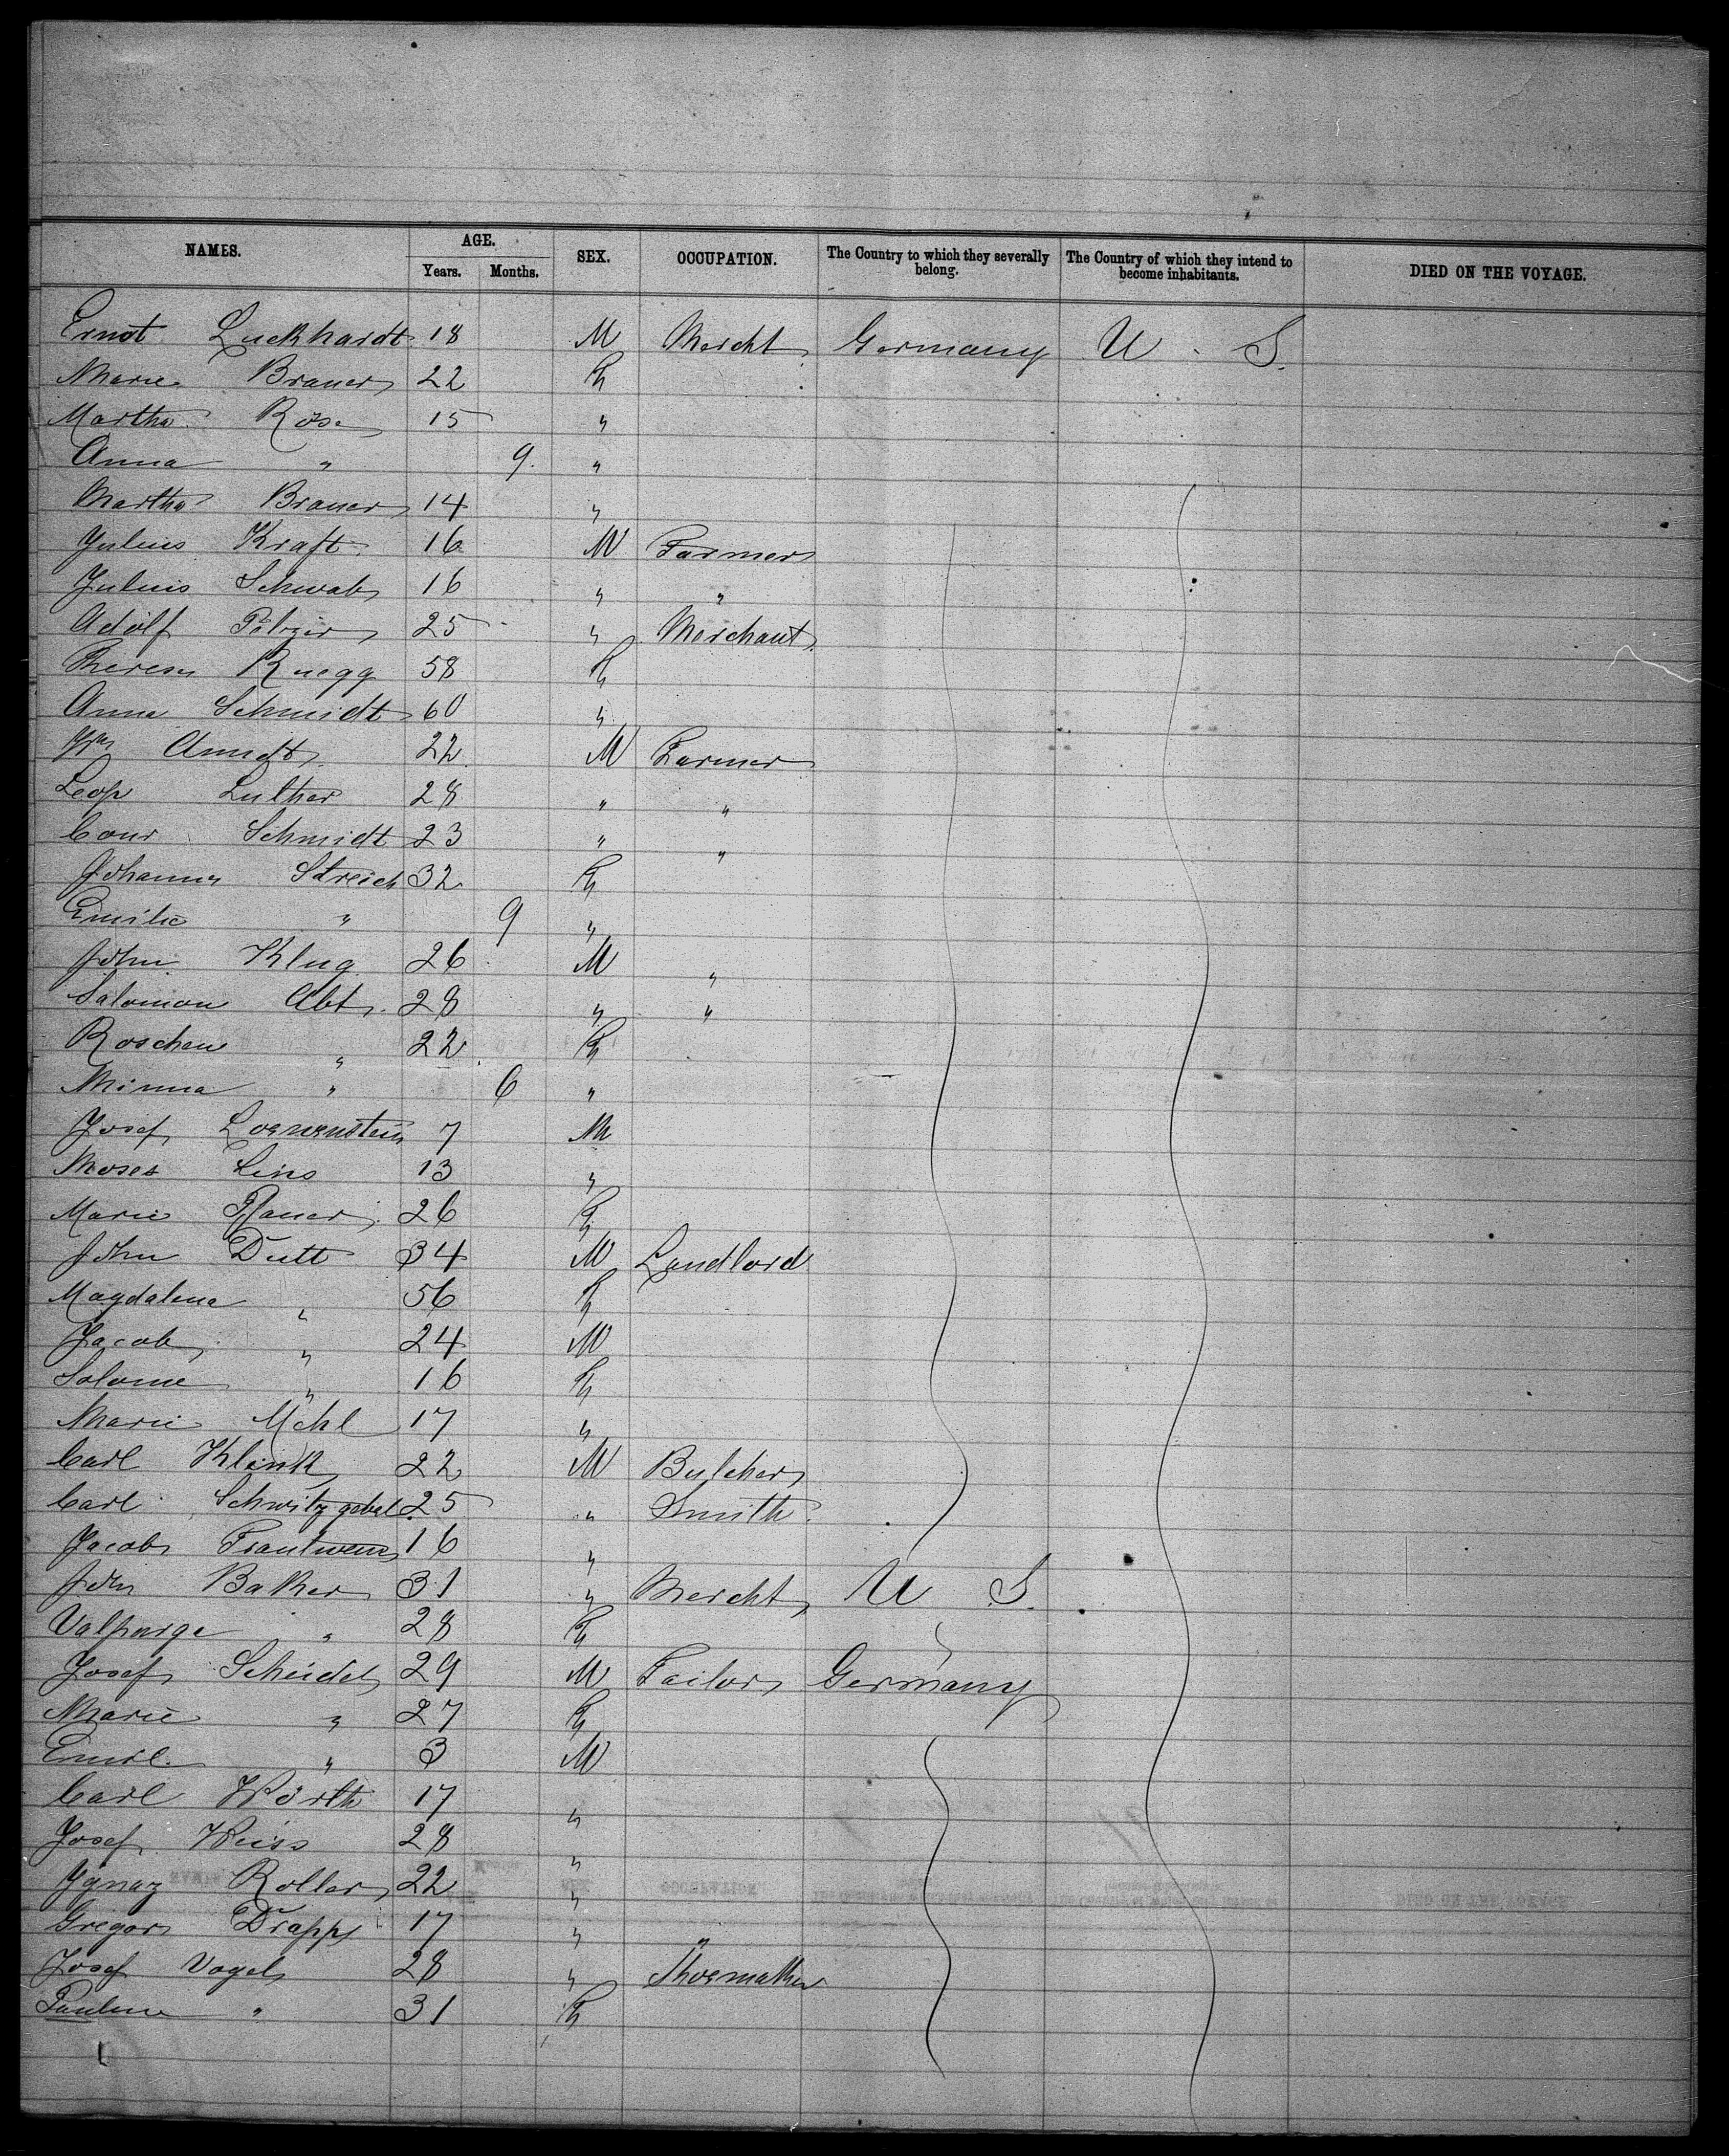 NAMES. AGE. SEX. OCCUPATION. The Country to which they severally belong. The Country of which they intend to become inhabitants. DIED ON THE VOYAGE.
Years. Months.
Ernst Luckhardt 18 M Mercht Germany U. S.
Marie Brauer 22 F
Martha Rose 15 "
Anna " 9 "
Martha Brauer 14 "
Julius Kraft 16 M Farmer
Julius Schwab 16 " "
Adolf 25 " Merchant
Theresa Ruegg 58 F
Anna Schmidt 60 "
Wm Arndt 22 M Farmer
Leop Luther 28 " "
Conr Schmidt 23 " "
Johanna Streich 32 F
Emilie " 9 "
John Klug 26 M "
Salomon Abt 28 " "
Roschen " 22 F
Minna " 6 "
Josef Loewenstein 7 M
Moses Lins 13 "
Marie 26 F
John Dutt 34 M Landlord
Magdalena " 56 F
Jacob " 24 M
Salome " 16 F
Marie Mehl 17 "
Carl Klink 22 M Butcher
Carl Schwitzgebel 25 " Smith
Jacob Trautwein 16 "
John Baker 31 " Mercht U S.
Valpurga " 28 F
Josef Scheidel 29 M Tailor Germany
Marie " 27 F
Emil " 3 M
Carl Wörth 17 "
Josef Weiss 28 "
Ignaz Roller 22 "
Gregor Drapp 17 " "
Josef Vogel 28 " Shoemaker
Pauline " 31 F